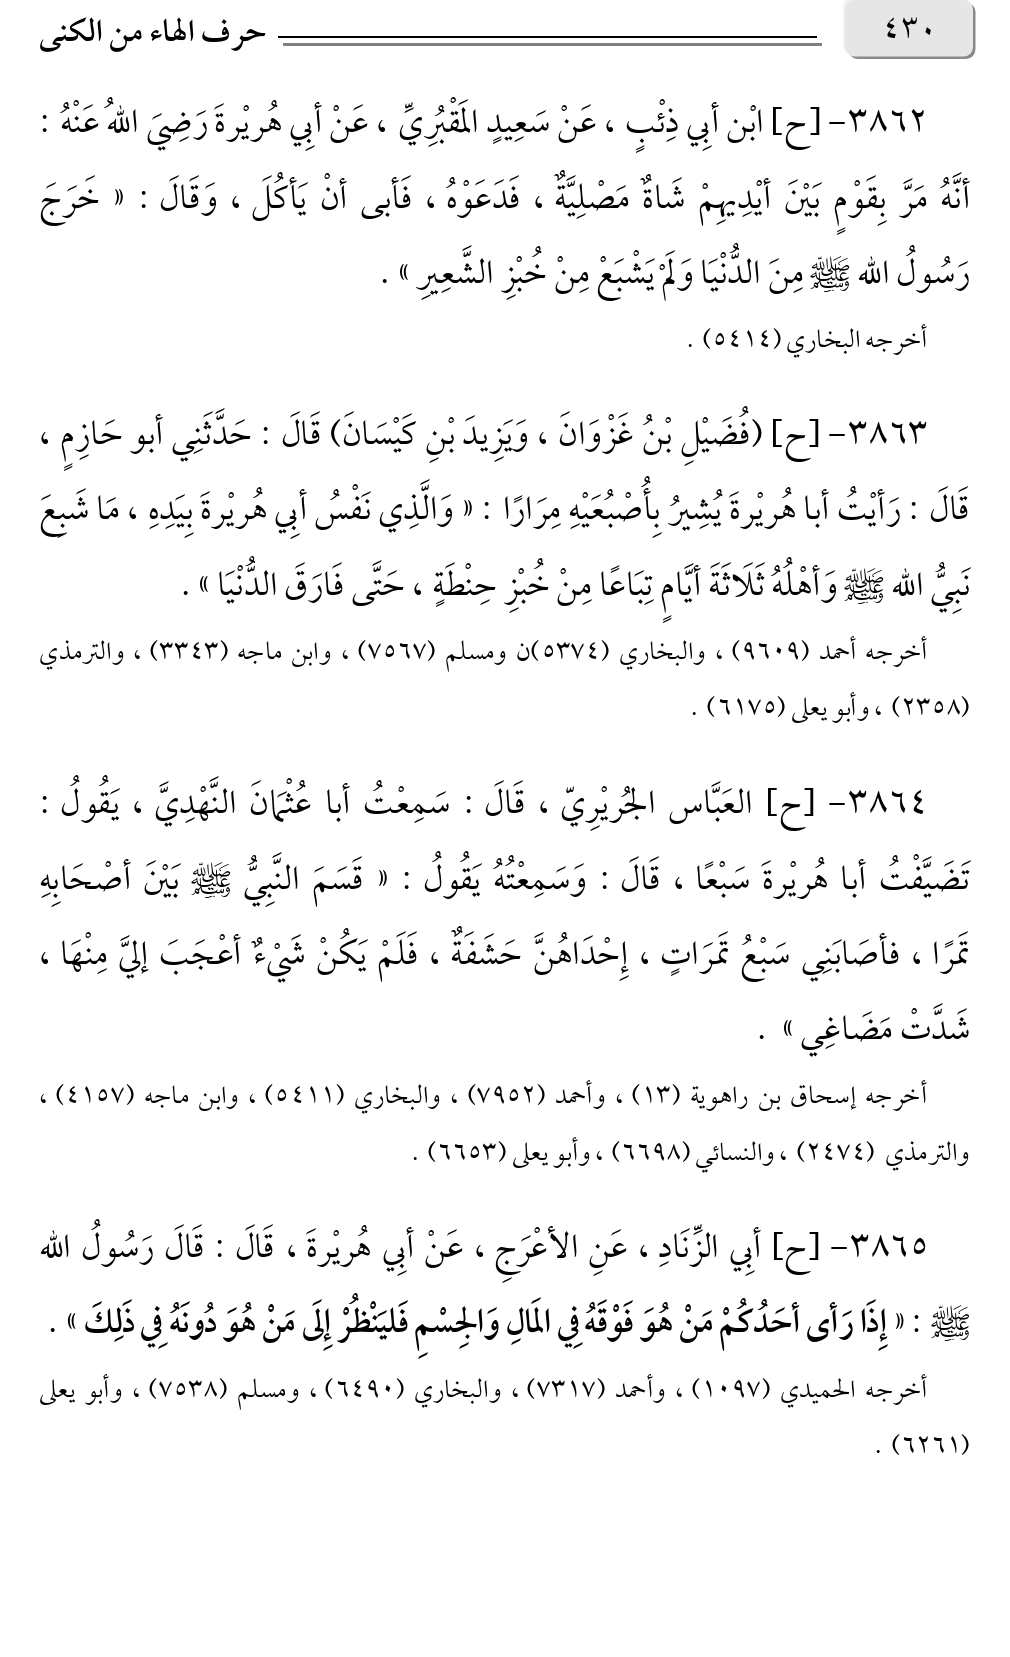 ٤٣٠
حرف الهاء من الكنى
٣٨٦٢- [ح] ابْن أبِي ذِئْبٍ ، عَنْ سَعِيدٍ المَقْبُرِيِّ ، عَنْ أبِي هُرَيْرةَ رَضِيَ اللهُ عَنْهُ :
أنَّهُ مَرَّ بِقَوْمٍ بَيْنَ أيْدِيهِمْ شَاةٌ مَصْلِيَّةٌ ، فَدَعَوْهُ ، فَأبى أنْ يَأكُلَ ، وَقَالَ : « خَرَجَ
رَسُولُ الله ﷺ مِنَ الدُّنْيَا وَلَمْ يَشْبَعْ مِنْ خُبْزِ الشَّعِيرِ » .
أخرجه البخاري (٥٤١٤) .
٣٨٦٣- [ح] (فُضَيْلِ بْنُ غَزْوَانَ ، وَيَزِيدَ بْنِ كَيْسَانَ) قَالَ : حَدَّثَنِي أبو حَازِمٍ ،
قَالَ : رَأيْتُ أبا هُرَيْرةَ يُشِيرُ بِأُصْبُعَيْهِ مِرَارًا : « وَالَّذِي نَفْسُ أبِي هُرَيْرةَ بِيَدِهِ ، مَا شَبِعَ
نَبِيُّ الله ﷺ وَأهْلُهُ ثَلَاثَةَ أيَّامٍ تِبَاعًا مِنْ خُبْزِ حِنْطَةٍ ، حَتَّى فَارَقَ الدُّنْيَا » .
أخرجه أحمد (٩٦٠٩) ، والبخاري (٥٣٧٤)ن ومسلم (٧٥٦٧) ، وابن ماجه (٣٣٤٣) ، والترمذي
(٢٣٥٨) ، وأبو يعلى (٦١٧٥) .
٣٨٦٤- [ح] العَبَّاس الجُرَيْرِيّ ، قَالَ : سَمِعْتُ أبا عُثْمَانَ النَّهْدِيَّ ، يَقُولُ :
تَضَيَّفْتُ أبا هُرَيْرةَ سَبْعًا ، قَالَ : وَسَمِعْتُهُ يَقُولُ : « قَسَمَ النَّبِيُّ ﷺ بَيْنَ أصْحَابِهِ
تَمرًا ، فأصَابَنِي سَبْعُ تَمَرَاتٍ ، إِحْدَاهُنَّ حَشَفَةٌ ، فَلَمْ يَكُنْ شَيْءٌ أعْجَبَ إليَّ مِنْهَا ،
شَدَّتْ مَضَاغِي » .
أخرجه إسحاق بن راهوية (١٣) ، وأحمد (٧٩٥٢) ، والبخاري (٥٤١١) ، وابن ماجه (٤١٥٧) ،
والترمذي (٢٤٧٤) ، والنسائي (٦٦٩٨) ، وأبو يعلى (٦٦٥٣) .
٣٨٦٥- [ح] أبِي الزِّنَادِ ، عَنِ الأعْرَجِ ، عَنْ أبِي هُرَيْرةَ ، قَالَ : قَالَ رَسُولُ الله
ﷺ : « إِذَا رَأى أحَدُكُمْ مَنْ هُوَ فَوْقَهُ فِي المَالِ وَالجِسْمِ فَليَنْظُرْ إِلَى مَنْ هُوَ دُونَهُ فِي ذَلِكَ » .
أخرجه الحميدي (١٠٩٧) ، وأحمد (٧٣١٧) ، والبخاري (٦٤٩٠) ، ومسلم (٧٥٣٨) ، وأبو يعلى
(٦٢٦١) .